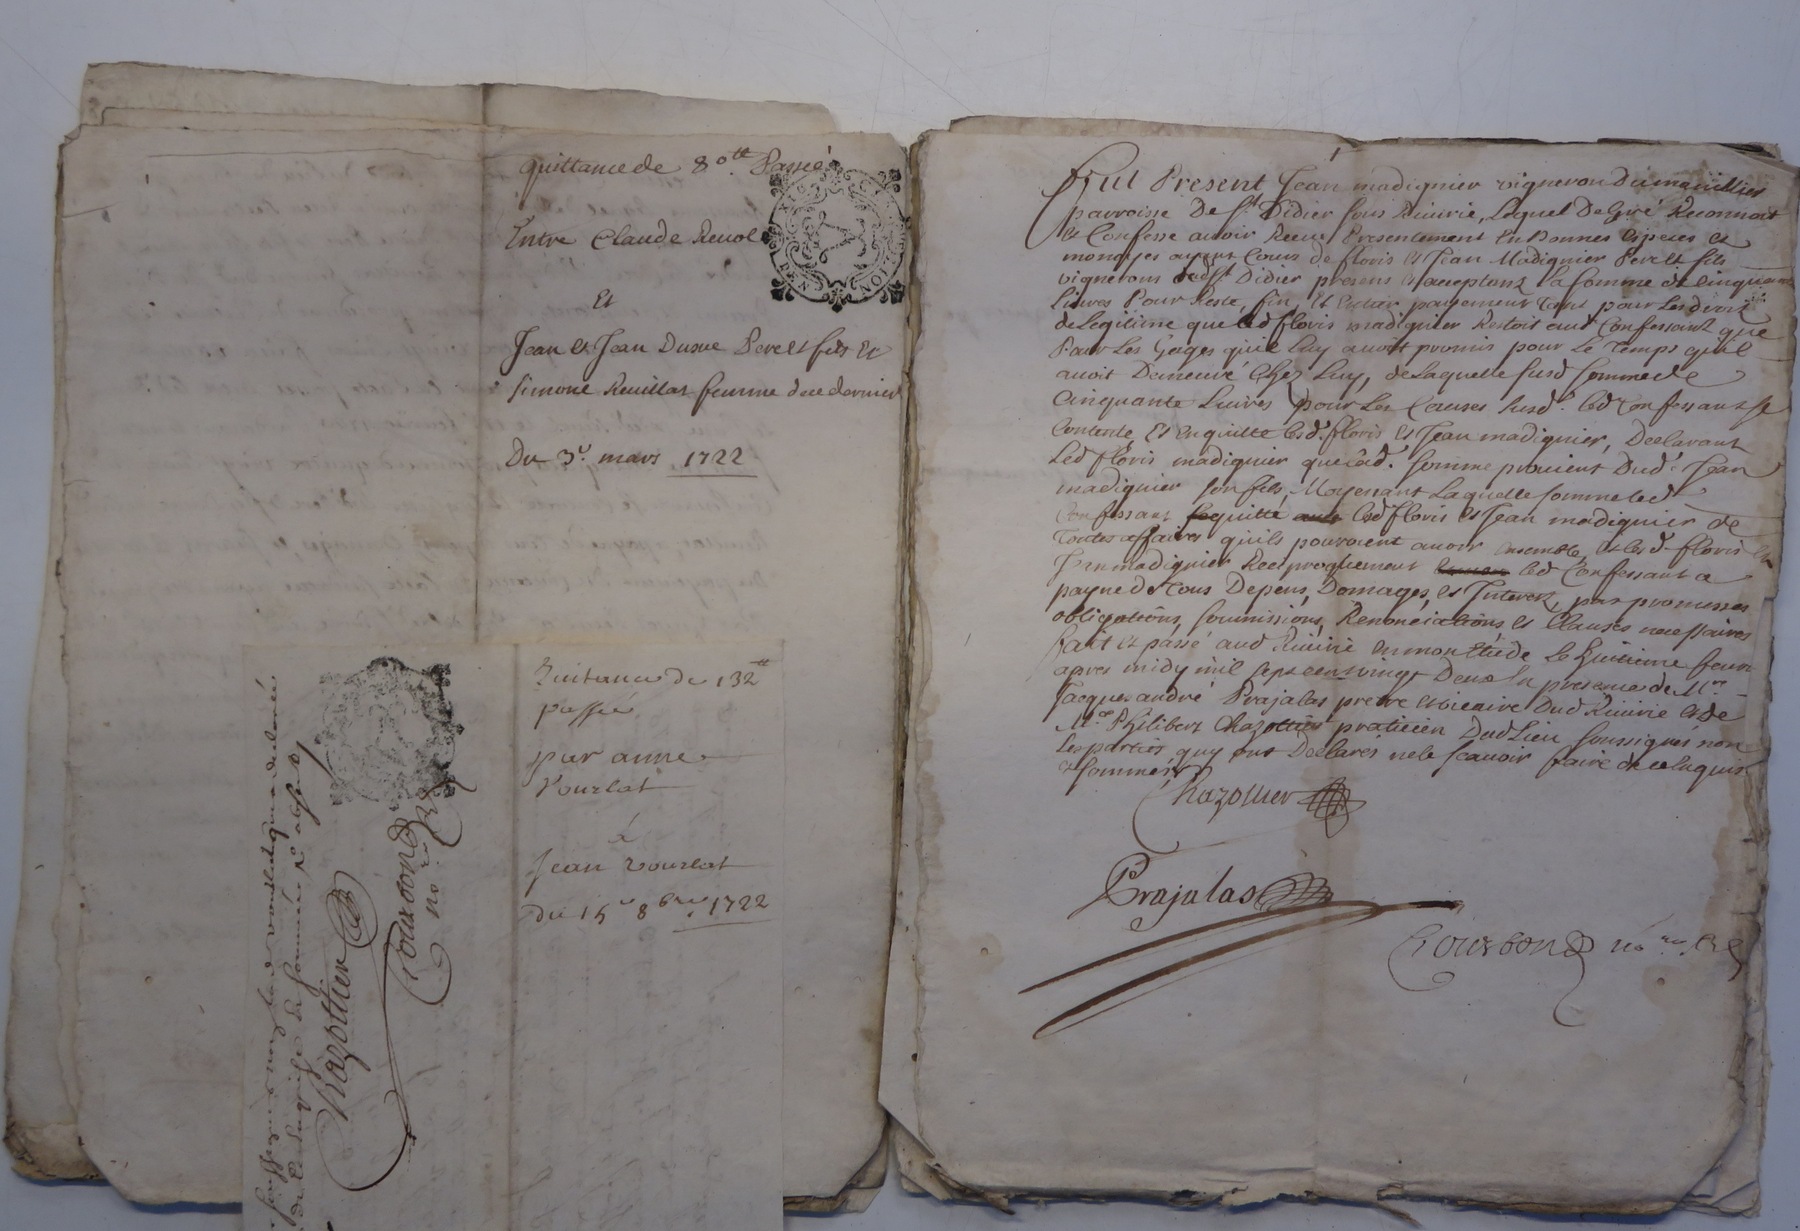 quittance de 80tt. Passée
Entre Claude Revol
Et
Jean et Jean Dusue Pere et fils Et
Simone Reuillat femme dice dernier
Du 3e. mars 1722
Quitance de 132tt
passée
par anne
Vourlat
a
Jean vourlat
du 15e 8bre. 1722
Chazottier
Fourbon
no.re
Fut Present Jean madignier vigneron du
parroisse De St Didier sous Riuirie, Lequel De Gré Reconnoit
et Confesse auoir Receu Presentement En Bonnes especes et
monoyes ayant Cours de floris et Jean Madignier Pere et fils
vignerons dud St Didier presens et acceptans La somme de Cinquante
Liures Pour Reste, fin, Et Entier payement tant pour Les droits
de Legitime que led floris madignier Restoit aud Confessant que
Pour Les Gages qu'il Luy auoit promis pour Le Temps qu'il
auoit Demeuré Chez Luy, de Laquelle susd somme de
Cinquante Liures pour Les Causes susd. led Confessant se
Contente Et En quitte lesd. floris et Jean madignier, Declarant
Led floris madignier que lad. somme prouient Dud. Jean
madignier son fils, Moyennant Laquelle somme led
Confessant quitte lesd floris et Jean madignier de
Toutes affaires qu'ils pouroient auoir ensemble, et lesd. floris et
Jean madignier Reciproquement led Confessant a
payne de tous Depens, Domages, et Interetz, par promesses
obligations, soumissions, Renonciations et Clauses necessaires
fait et passé aud Riuirié en mon Etude Le huitieme feur
apres midy mil sept cens vingt Deux En presence de Mre
Jacques andré Prajalas pretre et vicaire Dud Riuirié et de
Me Philibert Chazottier praticien Dud Lieu soussignés non
Les parties quy ont Declarés ne le scauoir faire de ce Enquis
et sommés
Chazottier
Prajalas
Fourbon no.re